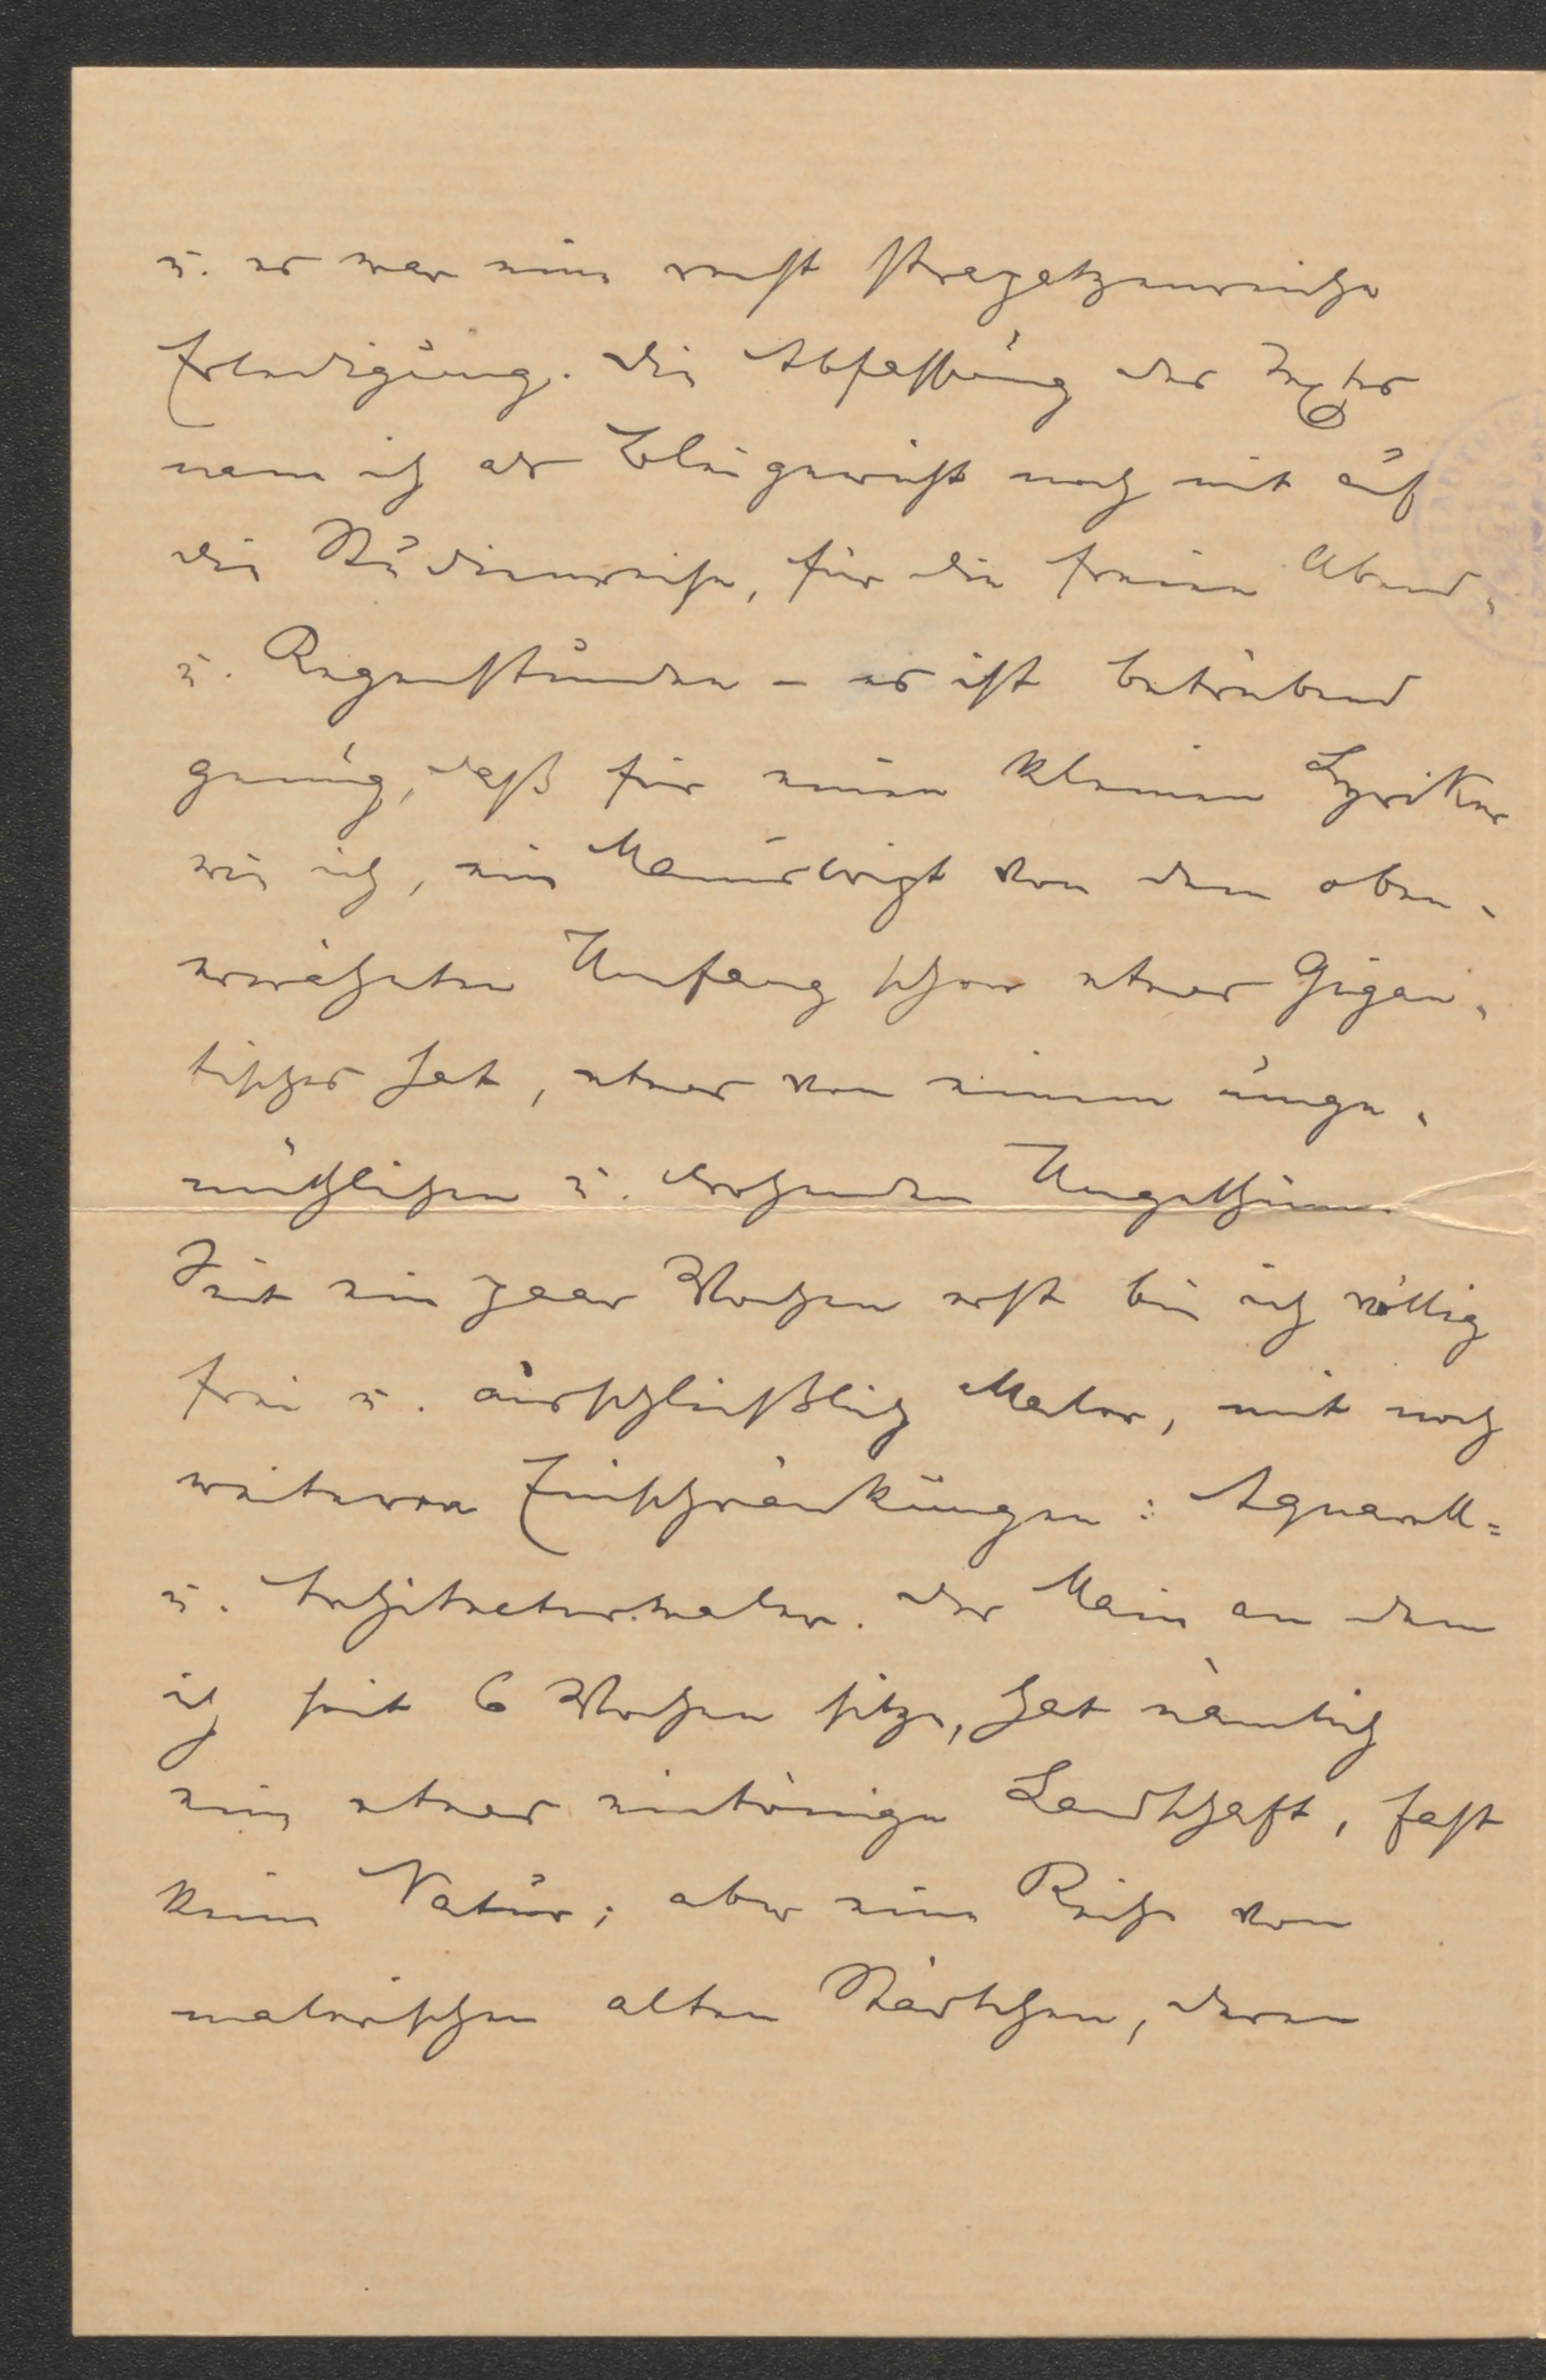 u. es war eine recht strapatzenreiche
Erledigung. Die Abfassung des Textes
nam ich als Bleigewicht noch mit auf
die Studienreise, für die freien Abend-
u. Regenstunden – es ist betrübend
genug, daß für einen kleinen Lyriker
wie ich, ein Manuskript von dem oben-
erwähnten Umfang schon etwas Gigan-
tisches hat, etwas von einem unge-
müthlichen u. drohenden Ungethüm.
Seit ein paar Wochen erst bin ich völlig
frei u. ausschließlich Maler, mit noch
weiteren Einschränkungen: Aquarell=
u. Architecturmaler. Der Main an dem
ich seit 6 Wochen sitze, hat nämlich
eine etwas eintönige Landschaft, fast
keine Natur; aber eine Reihe von
malerischen alten Städtchen, deren